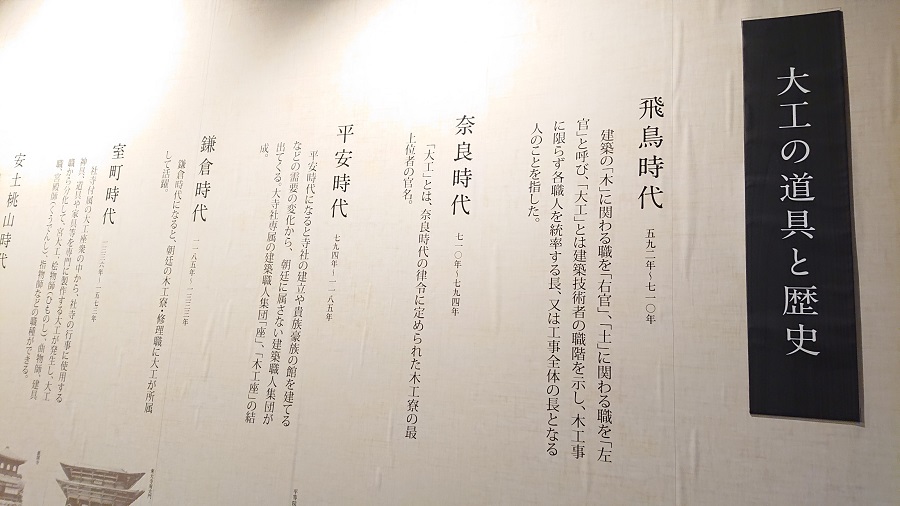 大工の道具と歴史
飛鳥時代 五九二年〜七一〇年
建築の「木」に関わる職を「右官」、「土」に関わる職を「左
官」と呼び、「大工」とは建築技術者の職階を示し、木工事
に限らず各職人を統率する長、又は工事全体の長となる
人のことを指した。
奈良時代 七一〇年〜七九四年
「大工」とは、奈良時代の律令に定められた木工寮の最
上位者の官名。
平安時代 七九四年〜一一八五年
平安時代になると寺社の建立や貴族豪族の館を建てる
などの需要の変化から、朝廷に属さない建築職人集団が
出てくる。大寺社専属の建築職人集団「座」、「木工座」の結
成。
鎌倉時代 一一八五年〜一三三三年
鎌倉時代になると、朝廷の木工寮・修理職に大工が所属
して活躍。
室町時代 一三三六年〜一五七三年
社寺付属の大工座衆の中から、社寺の行事に使用する
神具、道具や家具等を専門に製作する大工が発生し、大工
職から分化して、宮大工、桧物師(ひものし)、曲物師、建具
職、宮殿師(くうでんし)、指物師などの職種ができる。
安土桃山時代